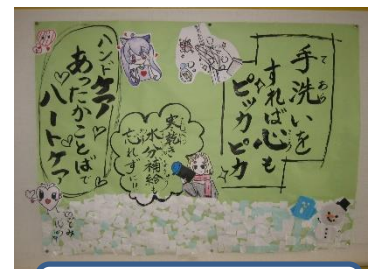 て あら
手洗いを
すれば心も
ピッカピカ
乾き
水分補給
忘れずに!!
ハンドケア
あったかことばで
ハートケア